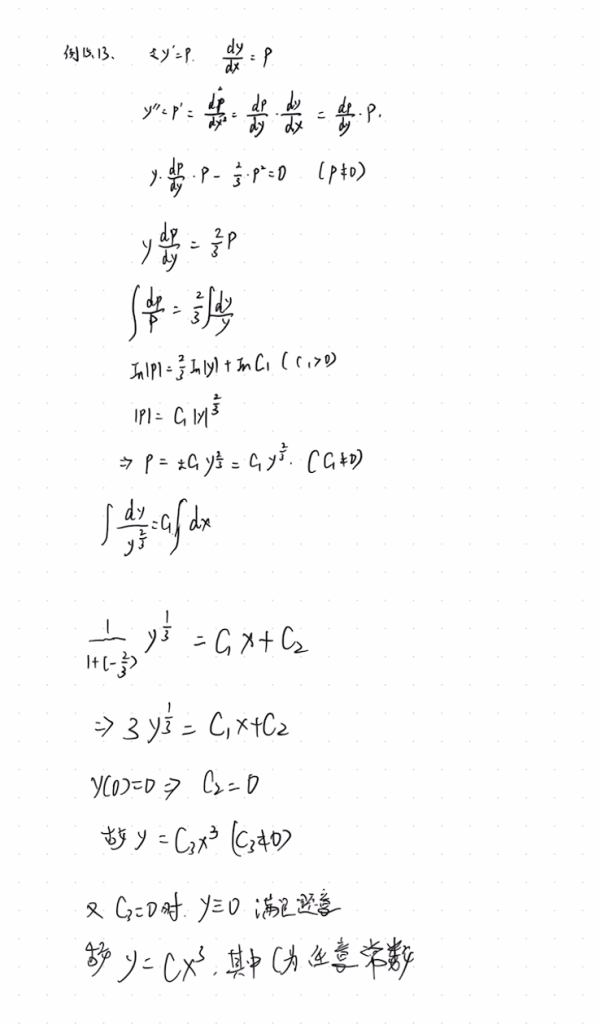 例15.13. 令y'=p. dy/dx = p
y''=p' = d²p/dx² = dp/dy · dy/dx = dp/dy · p.
y · dp/dy · p - 2/3 · p² = 0 (p≠0)
y dp/dy = 2/3 p
∫ dp/p = 2/3 ∫ dy/y
ln|p| = 2/3 ln|y| + ln C₁ (C₁>0)
|p| = C₁|y|^(2/3)
⇒ p = ±C₁ y^(2/3) = C₁ y^(2/3). (C₁≠0)
∫ dy/y^(2/3) = C₁∫ dx
1/(1+(-2/3)) y^(1/3) = C₁x + C₂
⇒ 3 y^(1/3) = C₁x + C₂
y(0)=0 ⇒ C₂=0
故 y = C₃x³ (C₃≠0)
又 C₃=0时. y≡0 满足题意
故 y = Cx³, 其中C为任意常数